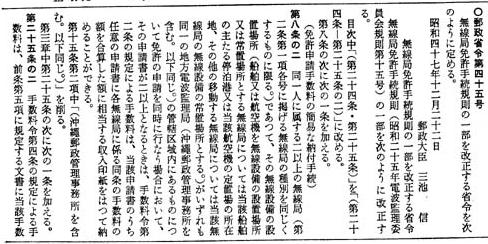 ○郵政省令第四十五号
無線局免許手続規則の一部を改正する省令を次
のように定める。
昭和四十七年十二月二十二日
郵政大臣 三池 信
無線局免許手続規則の一部を改正する省令
無線局免許手続規則(昭和二十五年電波監理委
員会規則第十五号)の一部を次のように改正す
る。
目次中「(第二十四条・第二十五条)」を「(第二十
四条―第二十五条の二)」に改める。
第八条の次に次の一条を加える。
(免許申請手数料の簡易な納付手続)
第八条の二 同一人に属する二以上の無線局(第
二条第一項各号に掲げる無線局の種別を同じく
するものに限る。)であつて、その無線設備の設
置場所(船舶又は航空機を無線設備の設置場所
又は常置場所とする無線局については当該船舶
の主たる停泊港又は当該航空機の定置場の所在
地、その他の移動する無線局については当該無
線局の無線設備の常置場所とする。)がいずれも
同一の地方電波監理局(沖縄郵政管理事務所を
含む。以下同じ。)の管轄区域内にあるものにつ
いて免許の申請を同時に行なう場合において、
その申請書が二以上となるときは、手数料令第
二条の規定による手数料は、当該申請書のうち
任意の申請書に各無線局に係る同条の手数料の
額を合算した額に相当する収入印紙をはつて納
めることができる。
第十三条第二項中「(沖縄郵政管理事務所を含
む。以下同じ。)」を削る。
第三章中第二十五条の次に次の一条を加える。
第二十五条の二 手数料令第四条の規定による手
数料は、前条第五項に規定する文書に当該手数